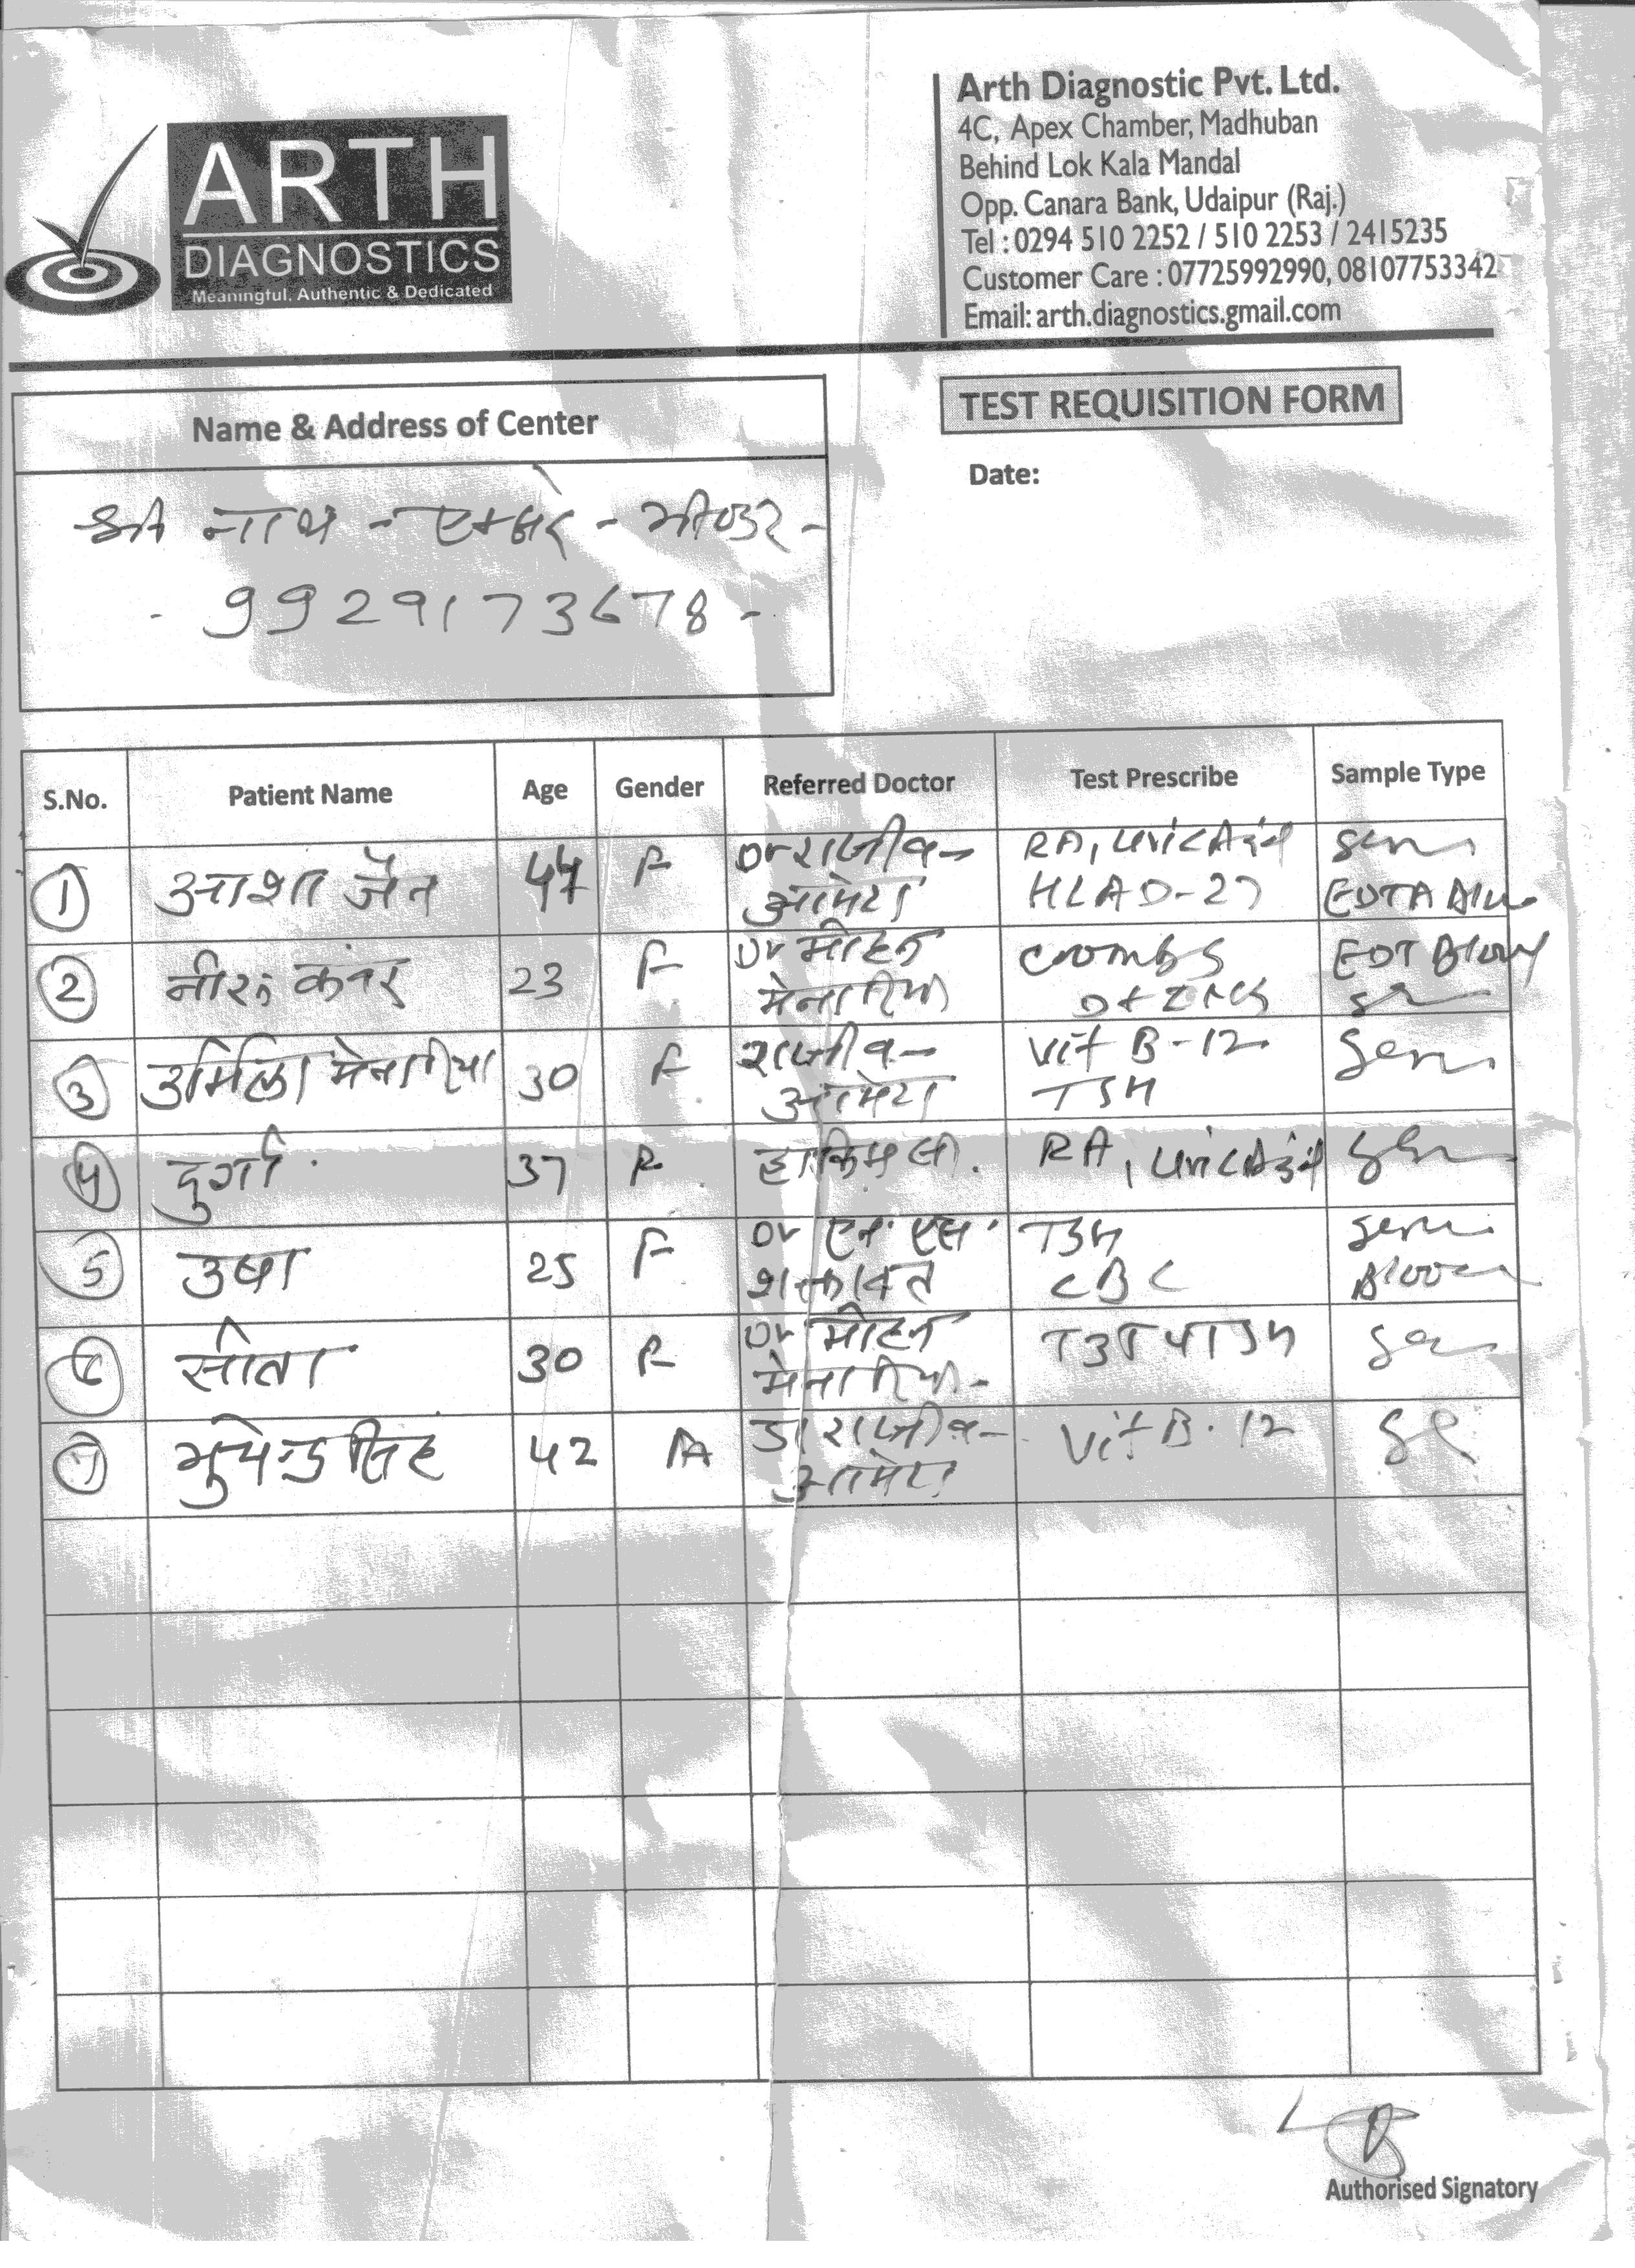 ARTH
DIAGNOSTICS
Meaningful, Authentic & Dedicated
Arth Diagnostic Pvt. Ltd.
4C, Apex Chamber, Madhuban
Behind Lok Kala Mandal
Opp. Canara Bank, Udaipur (Raj.)
Tel : 0294 510 2252 / 510 2253 / 2415235
Customer Care : 07725992990, 08107753342
Email: arth.diagnostics.gmail.com
Name & Address of Center
TEST REQUISITION FORM
Date:
श्री नाथ - एक्सरे - भीण्डर -
- 9929173678 -
S.No. Patient Name Age Gender Referred Doctor Test Prescribe Sample Type
1 आशा जैन 47 F Dr राजीव - आमेटा RA, Uric Acid HLAD-27 EDTA
2 नीरू कंवर 23 F Dr मोहन मेनारिया Coombs EDT Blood
3 उर्मिला मेनारिया 30 F राजीव - आमेटा Vit B-12 TSH Serum
4 दुर्गा 37 F हाकिम जी. RA, Uric Acid
5 उषा 25 F Dr एन. एस. शक्तावत TSH CBC Serum Blood
6 सीता 30 F Dr मोहन मेनारिया - T3T4TSH
7 भुपेन्द्र सिंह 42 डा राजीव - आमेटा Vit B-12 Se
Authorised Signatory